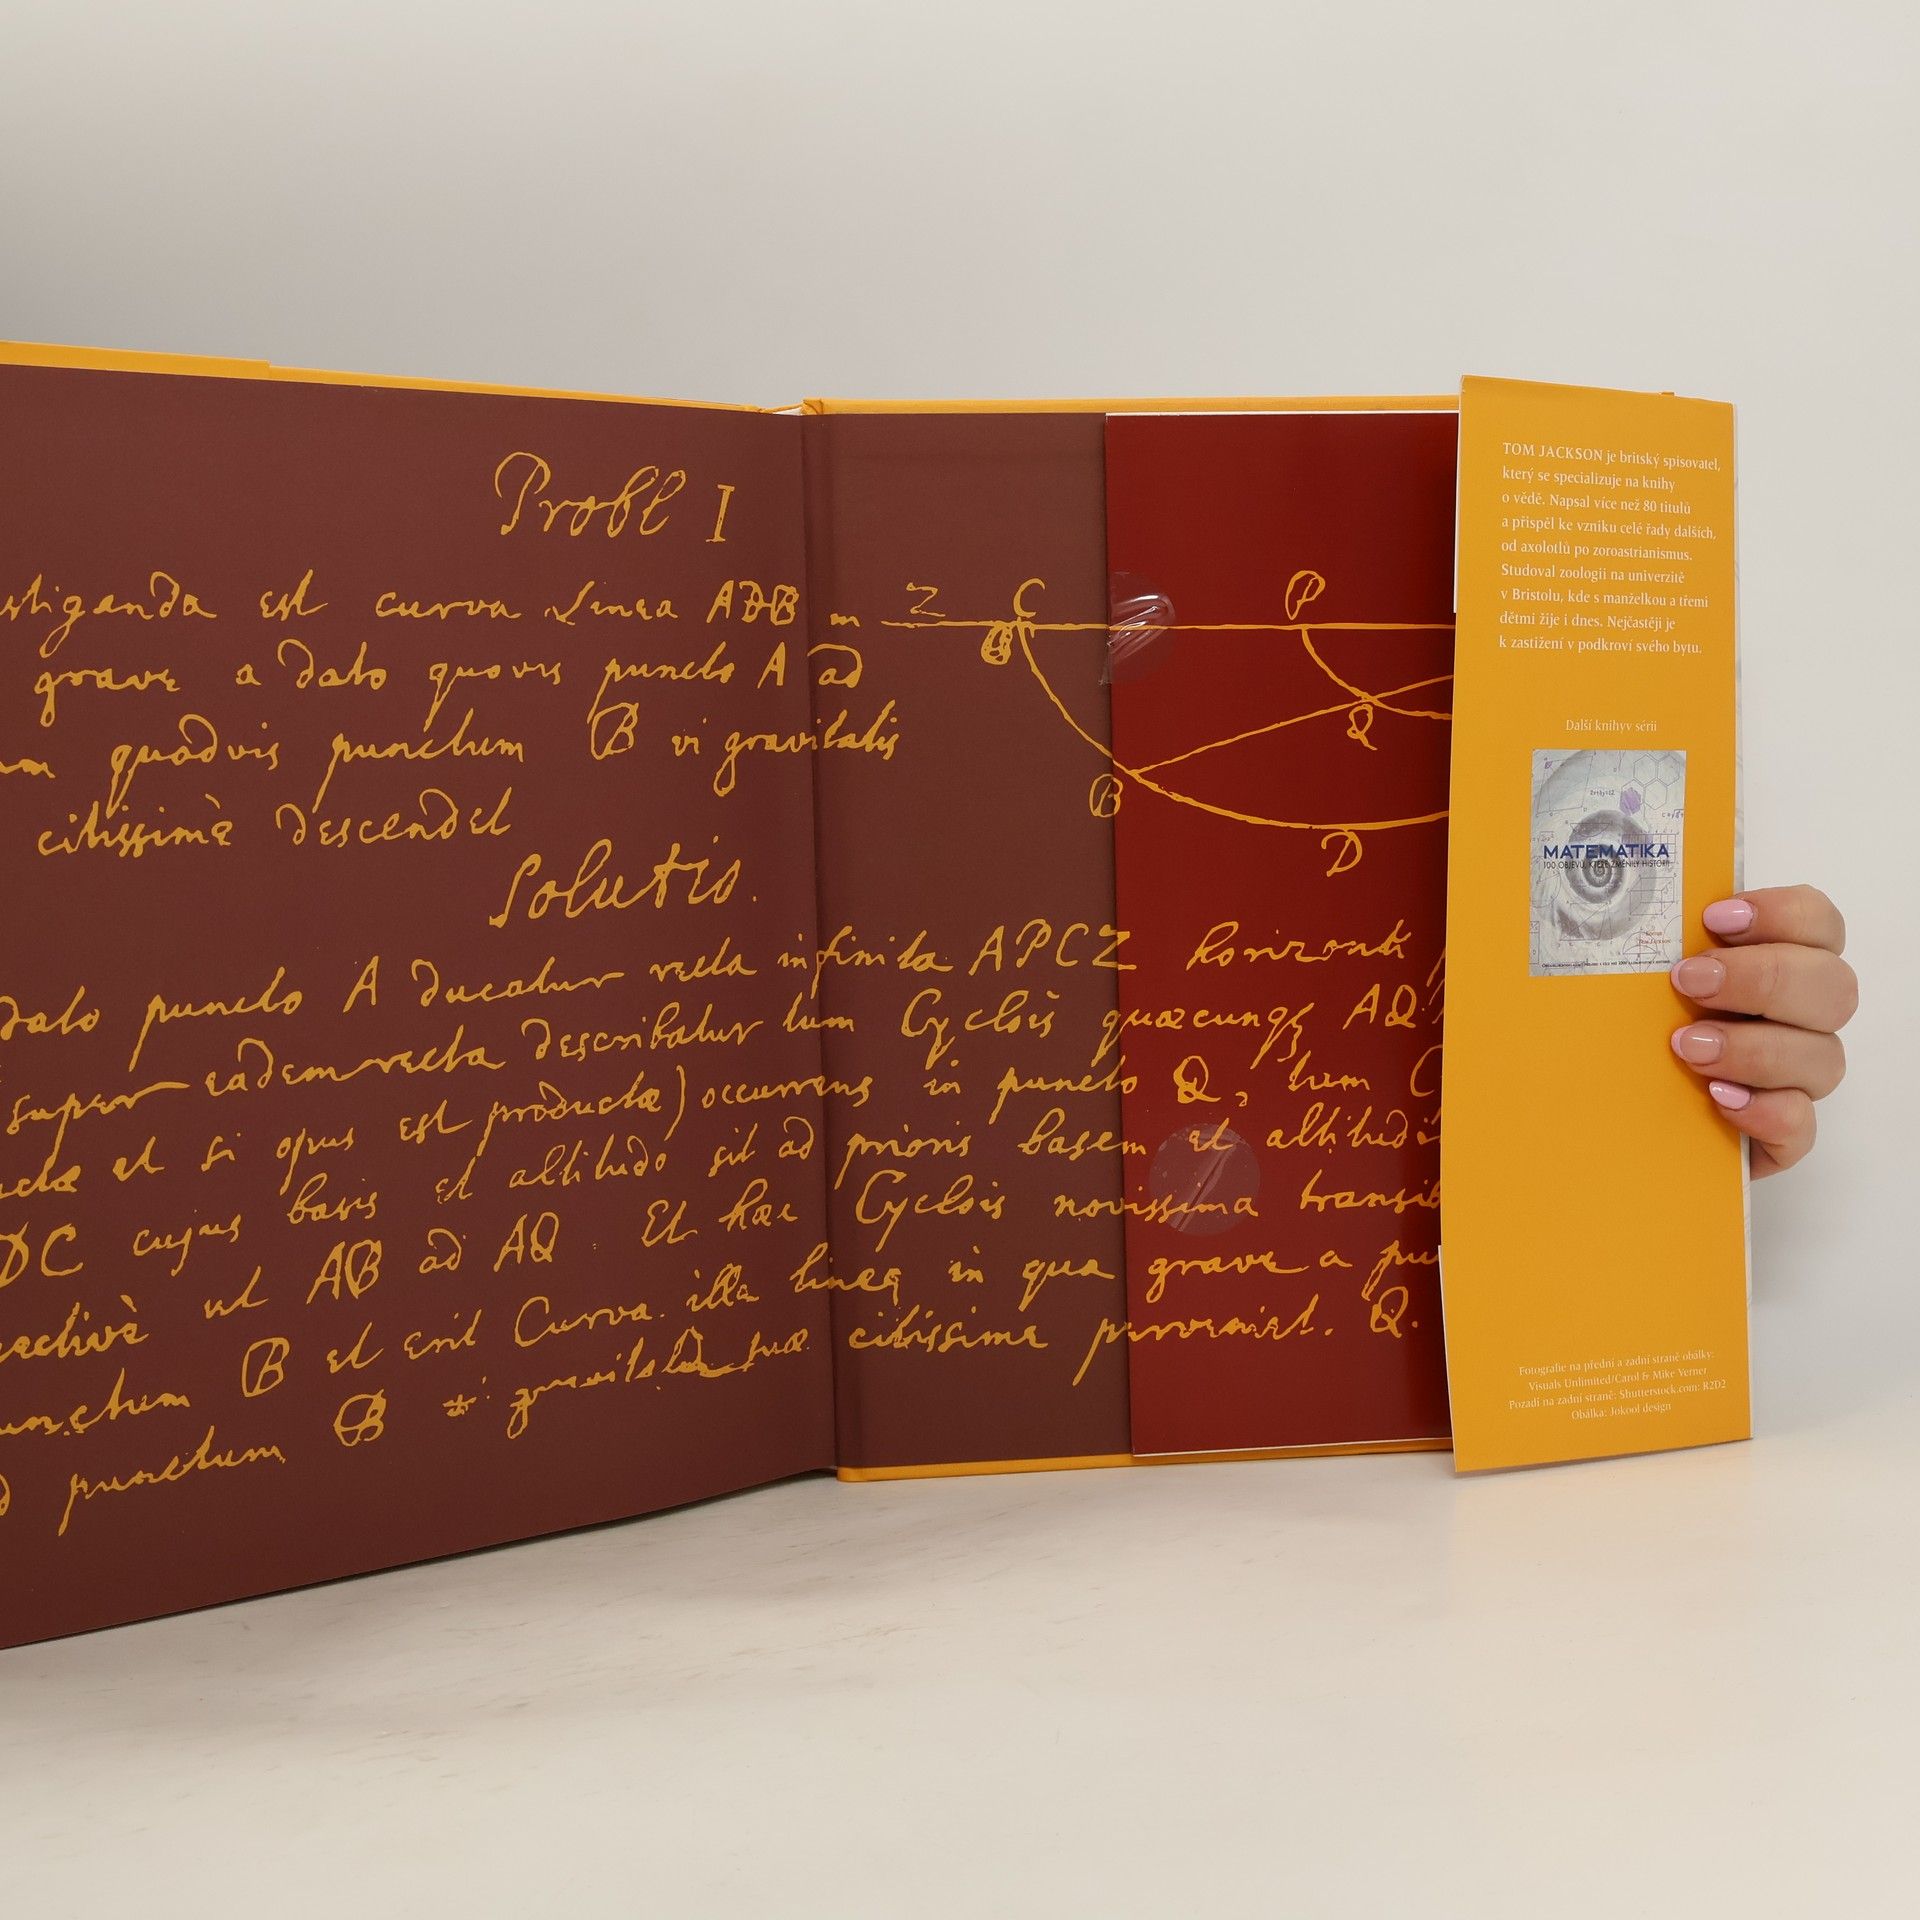 Probl I
est curva Linea ADB in
grave a dato quovis puncto A ad
quodvis punctum B vi gravitatis
citissimè descendet
Solutio.
Z C P
Q
B D
dato puncto A ducatur recta infinita APCZ horizonti
super eadem recta describatur tum Cyclois quæcunq AQ
et si opus est producta) occurrens in puncto Q, tum
DC cujus basis et altitudo sit ad prioris basem et altitudi
ut AB ad AQ. Et hæc Cyclois novissima transib
punctum B et erit Curva illa linea in qua grave a pu
punctum B gravitatis suæ citissime perveniet. Q.
TOM JACKSON je britský spisovatel,
který se specializuje na knihy
o vědě. Napsal více než 80 titulů
a přispěl ke vzniku celé řady dalších,
od axolotlů po zoroastrianismus.
Studoval zoologii na univerzitě
v Bristolu, kde s manželkou a třemi
dětmi žije i dnes. Nejčastěji je
k zastižení v podkroví svého bytu.
Další knihyv sérii
MATEMATIKA
100 OBJEVŮ, KTERÉ ZMĚNILY HISTORII
TOM JACKSON
Fotografie na přední a zadní straně obálky:
Visuals Unlimited/Carol & Mike Verner
Pozadí na zadní straně: Shutterstock.com: R2D2
Obálka: Jokool design